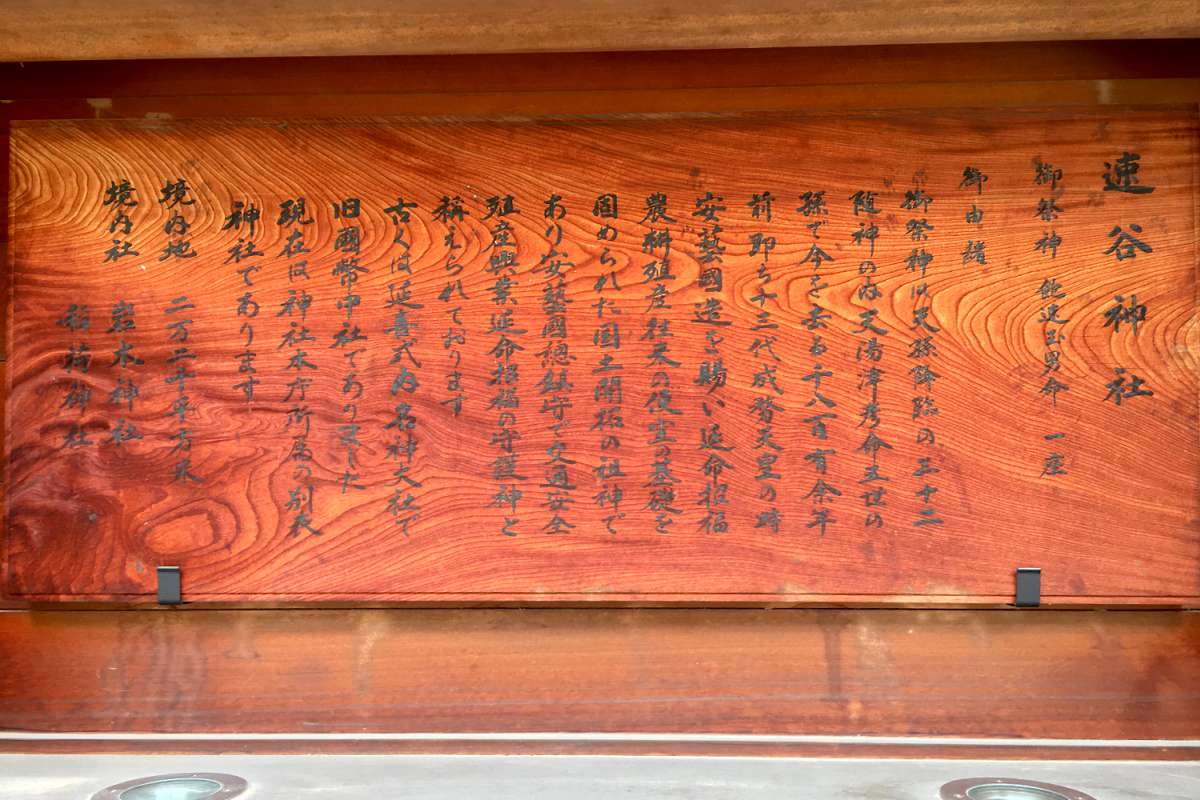 速谷神社
御祭神 飽速玉男命 一座
御由諸
御祭神は天孫降臨の三十二
随神の内天湯津彦命五世の
孫で今を去る千八百有余年
前即ち十三代成務天皇の時
安藝國造を賜い延命招福
農耕殖産社天の使堂の基礎を
固められた国土開拓の祖神で
あり安藝國總鎮守で交通安全
殖産興業延命招福の守護神と
稱えられております
古くは延喜式内名神大社で
旧國幣中社でありました
現在は神社本庁所属の別表
神社であります
境内地 二万二千平方米
境内社 岩木神社
稲荷神社